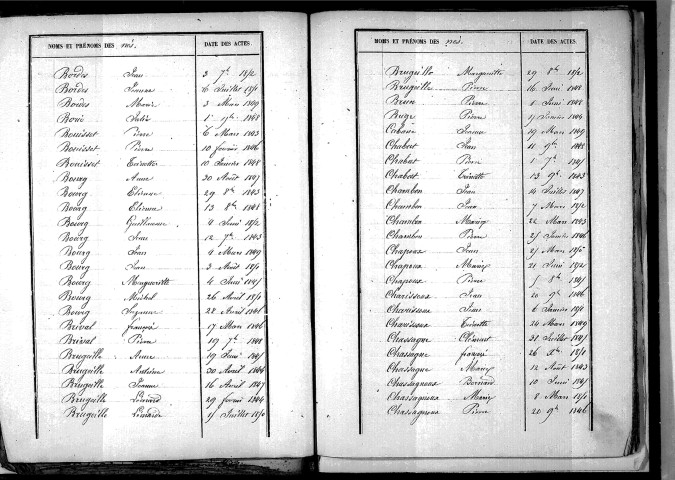 NOMS ET PRÉNOMS DES nés. DATE DES ACTES.
Bordes Jean 3 7.e 1852
Bordes Jeanne 16 Juillet 1851
Bordes Marie 3 Mars 1849
Boué Julie 1.r 9.e 1848
Bouisset Pierre 6 Mars 1843
Bouisset Pierre 10 février 1846
Bouisset Toinette 10 Janvier 1848
Bourg Anne 30 Août 1847
Bourg Etienne 29 8.e 1843
Bourg Etienne 13 8.e 1841
Bourg Guillaume 4 Juin 1852
Bourg Jean 12 7.e 1843
Bourg Jean 4 Mars 1849
Bourg Jean 3 Août 1850
Bourg Marguerite 4 Juin
Bourg Michel 26 Avril 1851
Bourg Suzanne 28 Avril 1841
Brival françois 17 Mars 1846
Brival Pierre 19 7.e 1848
Bruguille Anne 19 Juin
Bruguille Antoine 30 Avril 1846
Bruguille Jeanne 16 Avril 1847
Bruguille Léonard 29 février 1844
Bruguille Léonarde Juillet 1850
NOMS ET PRÉNOMS DES nés. DATE DES ACTES.
Bruguille Marguerite 29 8.e 1852
Bruguille Pierre 16 Juin 1848
Brun Pierre 1 Juin 1848
Buge Pierre Janvier 1844
Cabane Jeanne 19 Mars 1849
Chabert Jean 11 9.e 1848
Chabert Pierre 1 7.e
Chabert Toinette 13 9.e 1843
Chambon Jean 14 Juillet 1847
Chambon Jean 7 Mars 1852
Chambon Marie 22 Mars 1843
Chambon Pierre 25 Janvier 1846
Chapoux Jean 25 Mars
Chapoux Marie 21 Juin 1852
Chapoux Pierre 8.e
Charissoux Jean 20 9.e 1846
Charissoux Jean 6 Janvier 1850
Charissoux Toinette 24 Mars 1849
Chassagne Clément 31 Juillet
Chassagne françoise 26 X.e 1850
Chassagne Marie 12 Août 1843
Chassagnoux Bernard 10 Juin
Chassagnoux Marie 8 Mars 1850
Chassagnoux Pierre 20 9.e 1846